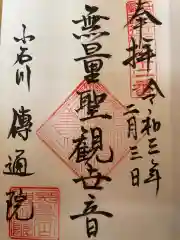 奉拝
令和三年
二月三日
無量聖観世音
小石川
傳通院